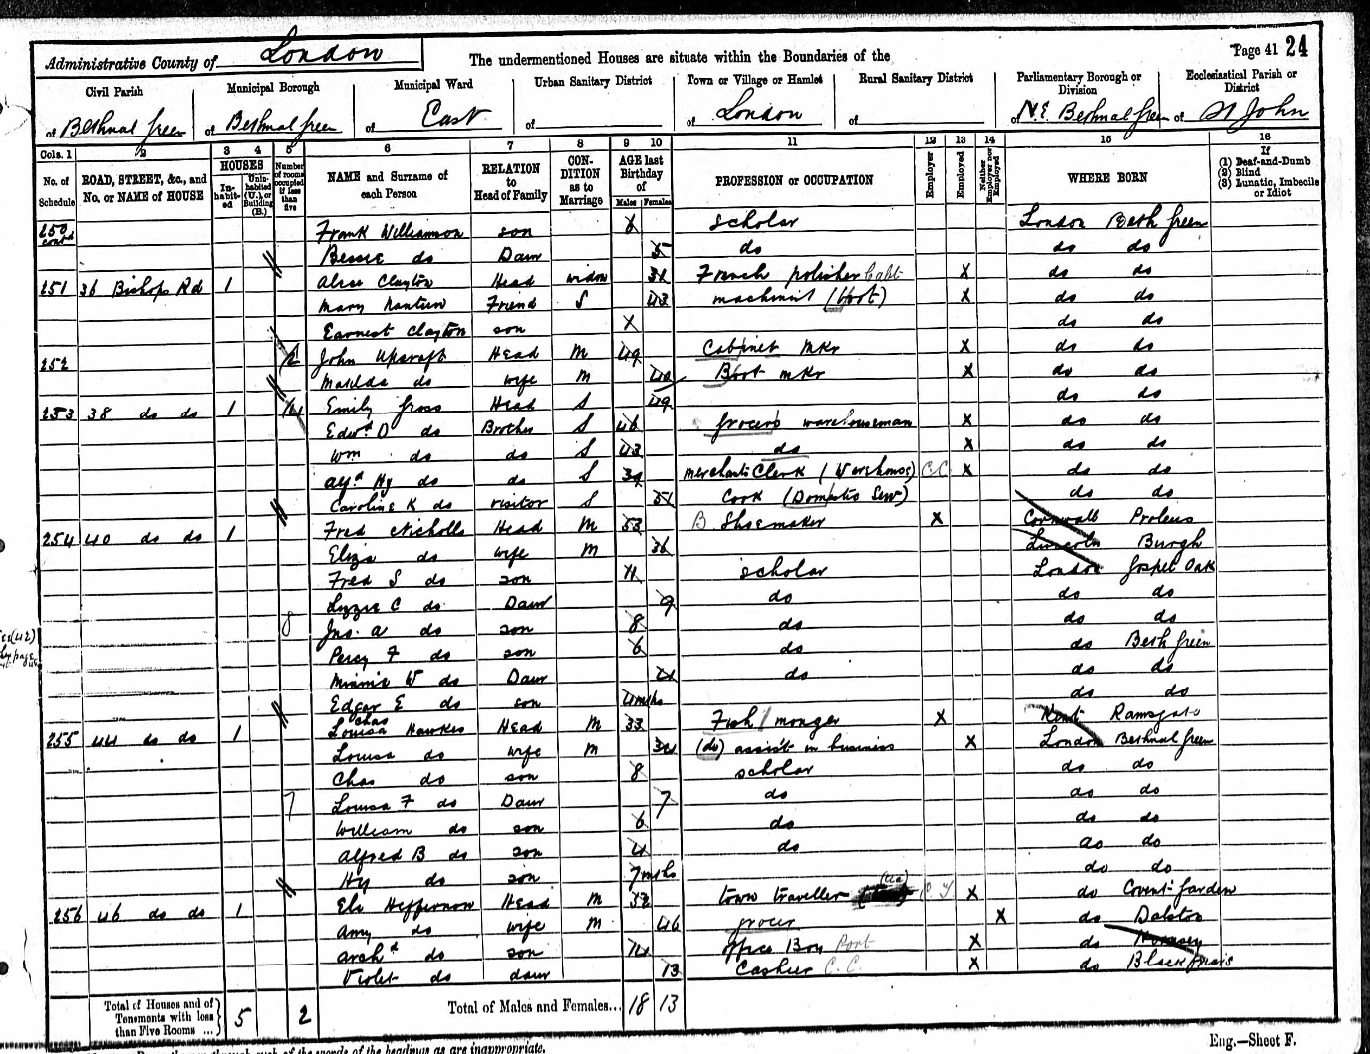 Page 41 24
Administrative County of London
The undermentioned Houses are situate within the Boundaries of the
Civil Parish of Bethnal Green
Municipal Borough of Bethnal Green
Municipal Ward of East
Urban Sanitary District of
Town or Village or Hamlet of London
Rural Sanitary District of
Parliamentary Borough or Division of N.E. Bethnal Green
Ecclesiastical Parish or District of St John
Cols. 1 2 3 4 5 6 7 8 9 10 11 12 13 14 15 16
No. of Schedule
ROAD, STREET, &c., and No. or NAME of HOUSE
HOUSES
Inhabited
Uninhabited (U.), or Building (B.)
Number of rooms occupied if less than five
NAME and Surname of each Person
RELATION to Head of Family
CONDITION as to Marriage
AGE last Birthday of
Males Females
PROFESSION or OCCUPATION
Employer
Employed
Neither Employer nor Employed
WHERE BORN
If (1) Deaf-and-Dumb (2) Blind (3) Lunatic, Imbecile or Idiot
250 contd Frank Williamson son scholar London Beth Green
Bessie do Daur 5 do do do
251 36 Bishops Rd 1 Alice Clayton Head widow French polisher X do do
Mary Friend S 43 machinist (Boot) X do do
Earnest Clayton son do do
252 2 John Upcraft Head M 49 Cabinet Mkr X do do
Matilda do wife M Boot mkr X do do
253 38 do do 1 4 Emily Gross Head S 49 do do
Edwd D do Brother S 46 grocers warehouseman X do do
Wm do do S 43 do X do do
Hy do do S 39 merchants Clerk C.C. X do do
Caroline K do visitor S 51 Cook (Domestic Serv) do do
254 40 do do 1 Fred Nicholls Head M 53 B Shoemaker X Cornwall
Eliza do wife M 36 Lincoln Burgh
Fred S do son 11 scholar London Gospel Oak
Lizzie C do Daur 9 do do do
8 Jno. A do son 8 do do do
Percy F do son 6 do do Beth Green
Minnie W do Daur 4 do do do
Edgar E do son 4 mths do do
255 44 do do 1 Chas Louisa Hawkes Head M 33 Fish/monger X Kent Ramsgate
Louisa do wife M 34 (do) assist in business X London Bethnal Green
Chas do son 8 scholar do do
7 Louisa F do Daur 7 do do do
William do son 6 do do do
Alfred B do son 4 do do do
Hy do son 7 mths do do
256 46 do do 1 Eli Heffernon Head M 32 town traveller X do Covent Garden
Amy do wife M 46 grocer X do Dalston
Archd do son 14 office Boy Port X do Hornsey
Violet do daur 13 Cashier C.C. X do Blackfriars
Total of Houses and of Tenements with less than Five Rooms ... 5 2
Total of Males and Females... 18 13
Eng.—Sheet F.